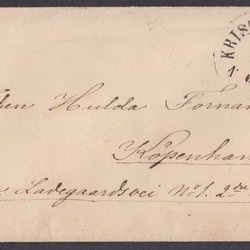 KRIS
1
Hulda Forna
Kopenhan
Ladegaardsvei No 1. 2de